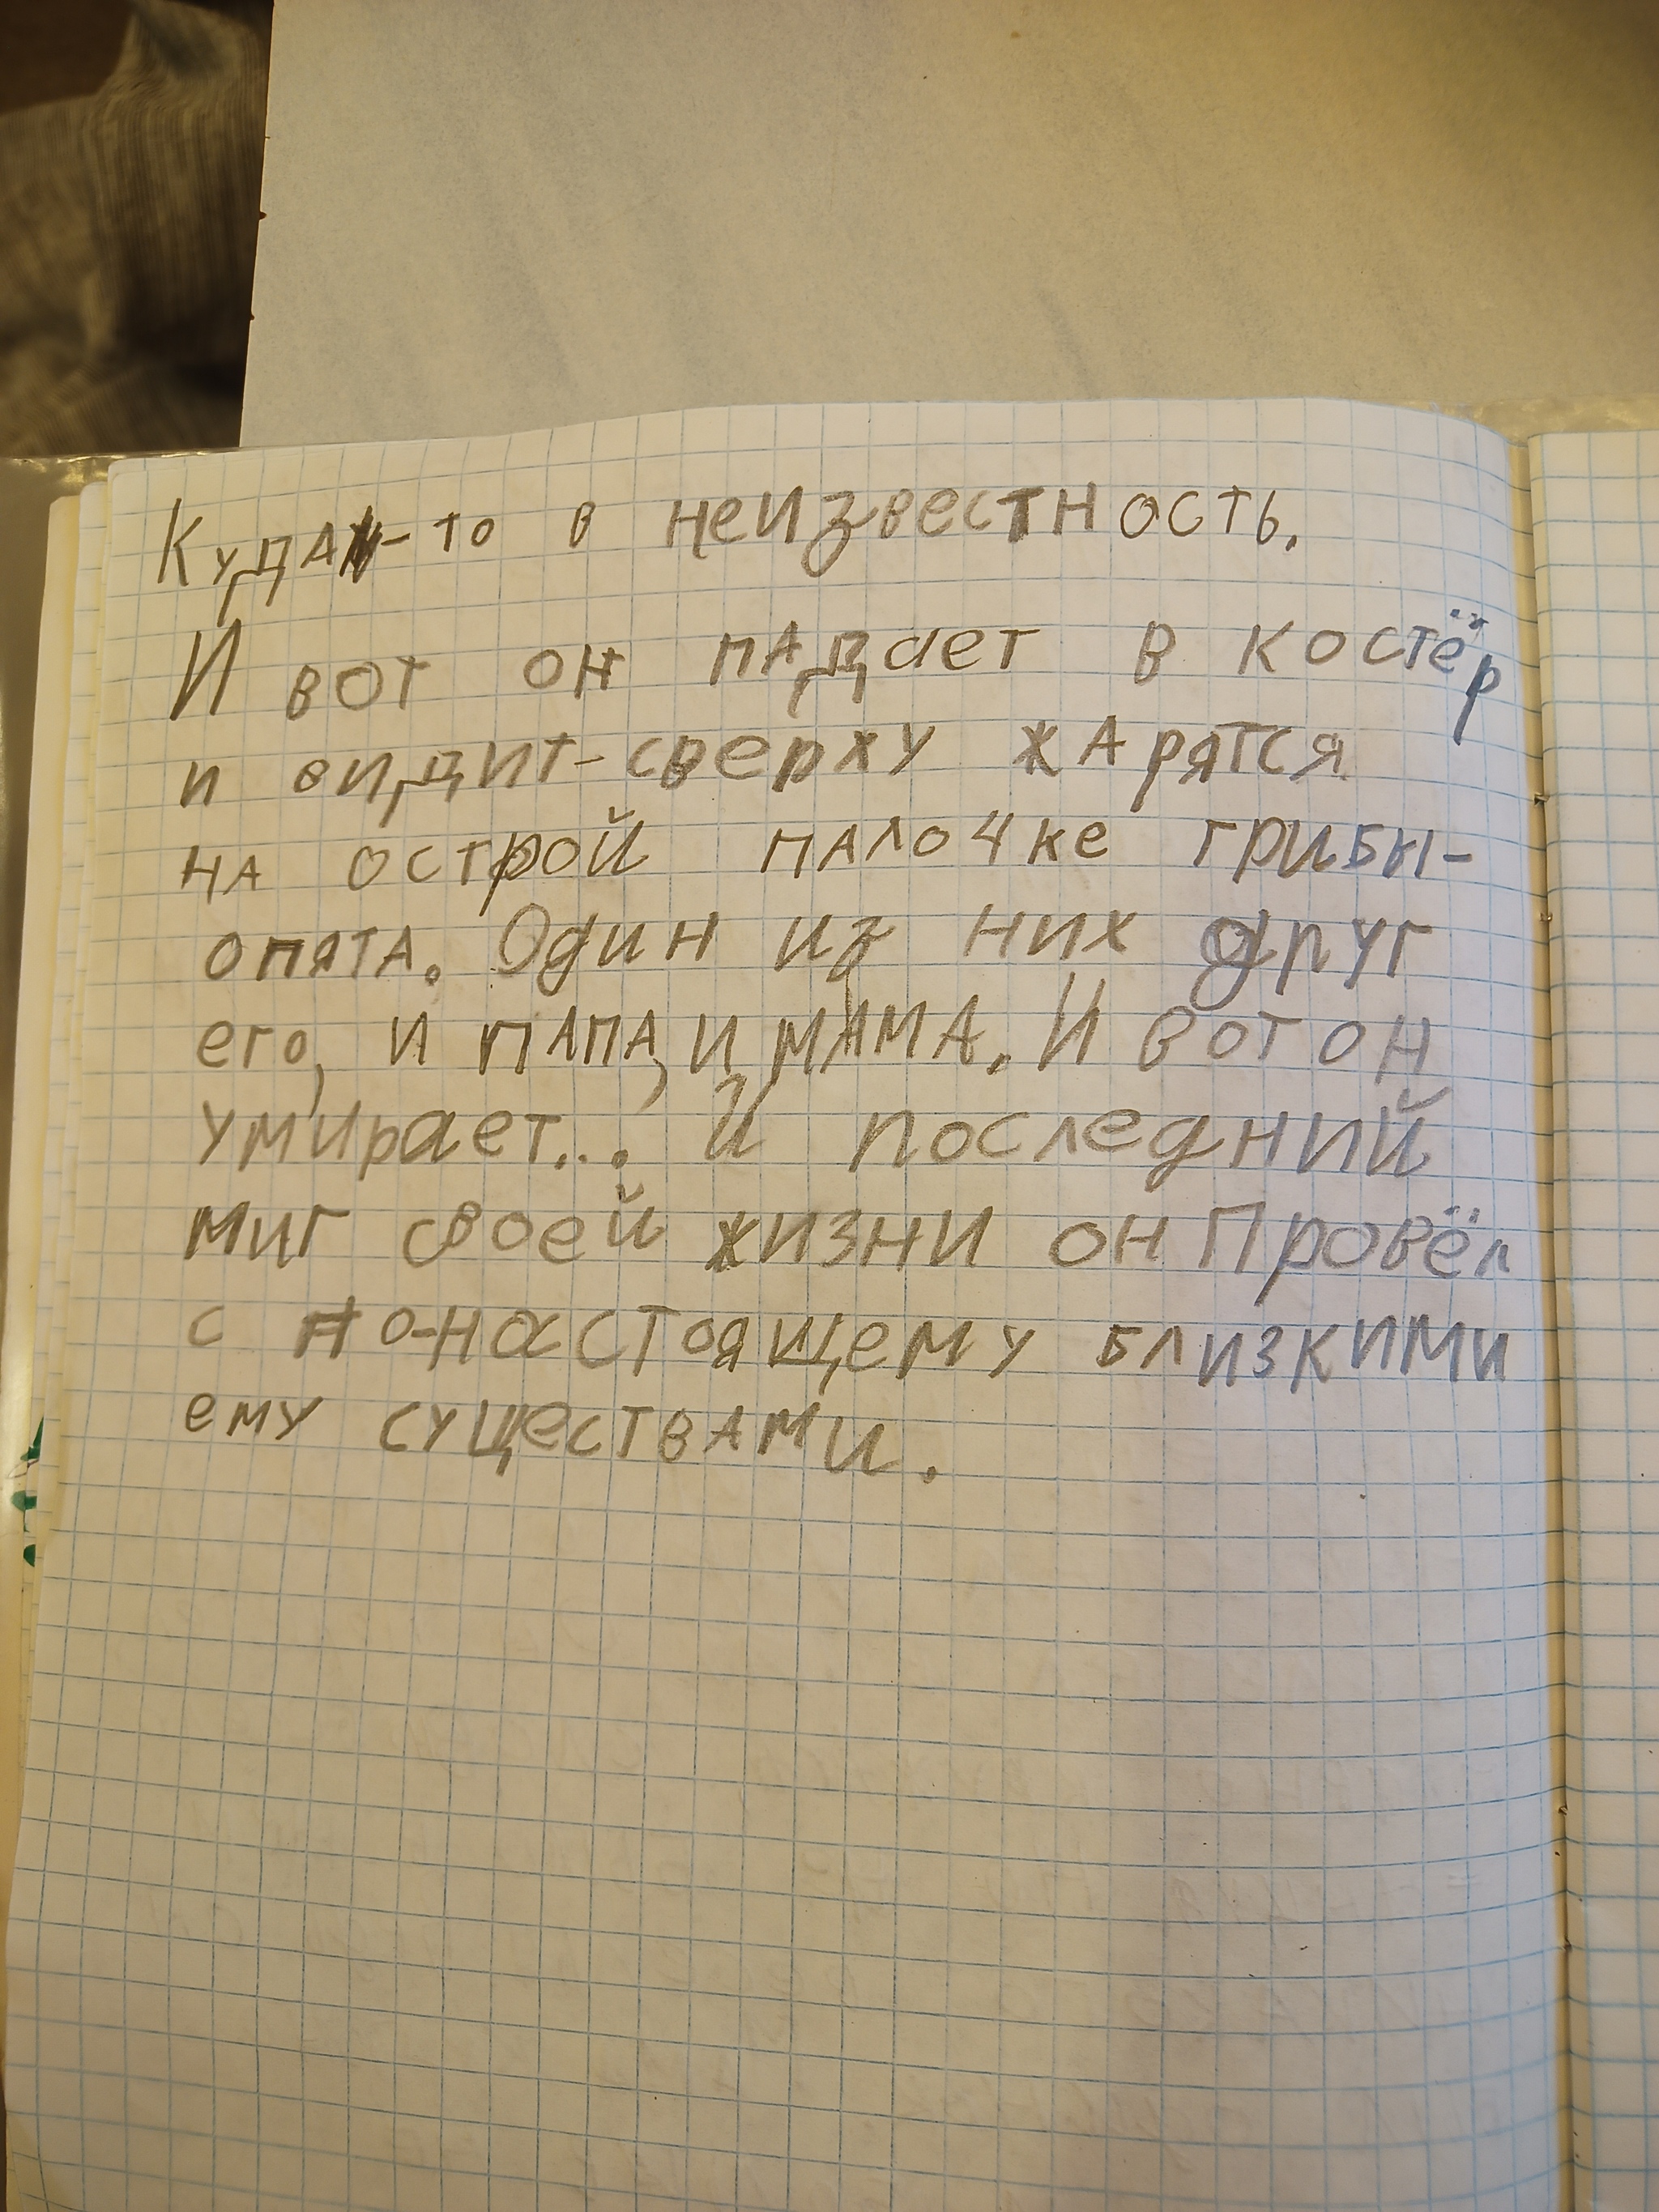 Куда-то в неизвестность.
И вот он падает в костёр
и видит-сверху жарятся
на острой палочке грибы-
опята. Один из них друг
его, и папа, и мама. И вот он
умирает... Й последний
миг своей жизни он Провёл
с по-настоящему близкими
ему существами.